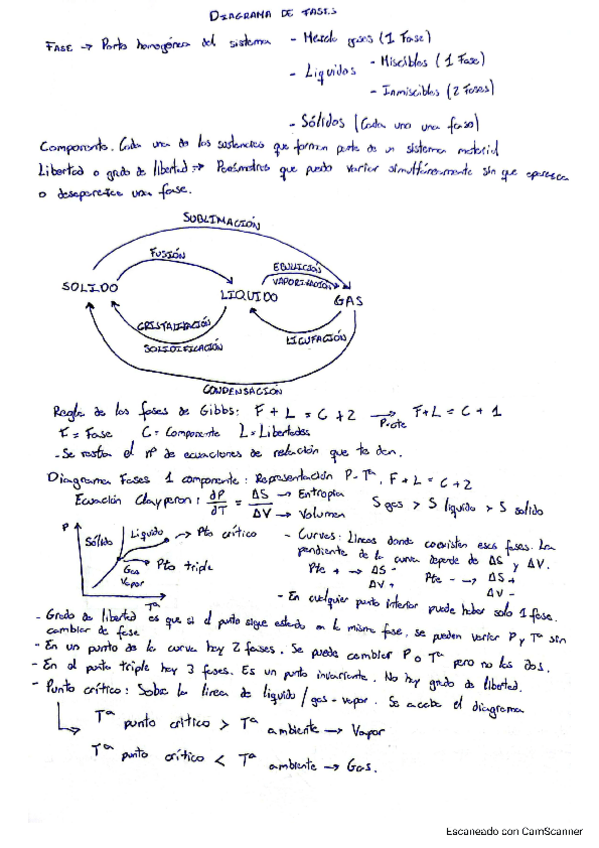 DIAGRAMA DE FASES
FASE → Parte homogénea del sistema - Mezcla gases (1 Fase)
- Líquidos - Miscibles (1 Fase)
- Inmiscibles (2 Fases)
- Sólidos (Cada uno una fase)
Componente. Cada una de las sustancias que forman parte de un sistema material
Libertad o grado de libertad → Parámetros que puedo variar simultáneamente sin que aparezca
o desaparezca una fase.
SUBLIMACIÓN
FUSIÓN
EBULLICIÓN
VAPORIZACIÓN
SOLIDO
LIQUIDO
GAS
CRISTALIZACIÓN
SOLIDIFICACIÓN
LICUFACIÓN
CONDENSACIÓN
Regla de las fases de Gibbs: F + L = C + 2 → P=cte F+L = C + 1
F = Fase C = Componente L = Libertades
- Se resta el nº de ecuaciones de relación que te den.
Diagrama Fases 1 componente: Representación P-Tª. F + L = C + 2
Ecuación Clayperon: dP/dT = ΔS/ΔV → Entropia → Volumen S gas > S líquido > S solido
P Sólido Líquido → Pto crítico
Gas Vapor → Pto triple
Tª
- Curvas: Lineas donde coexisten esas fases. La
pendiente de la curva depende de ΔS y ΔV.
Pte + → ΔS - ΔV + Pte - → ΔS + ΔV -
- En cualquier punto interior puede haber solo 1 fase.
- Grado de libertad es que si el punto sigue estando en la misma fase, se pueden variar P y Tª sin
cambiar de fase
- En un punto de la curva hay 2 fases. Se puede cambiar P o Tª pero no las dos.
- En el punto triple hay 3 fases. Es un punto invariante. No hay grado de libertad.
- Punto crítico: Sobre la linea de liquido / gas - vapor. Se acaba el diagrama
Tª punto crítico > Tª ambiente → Vapor
Tª punto crítico < Tª ambiente → Gas.
Escaneado con CamScanner